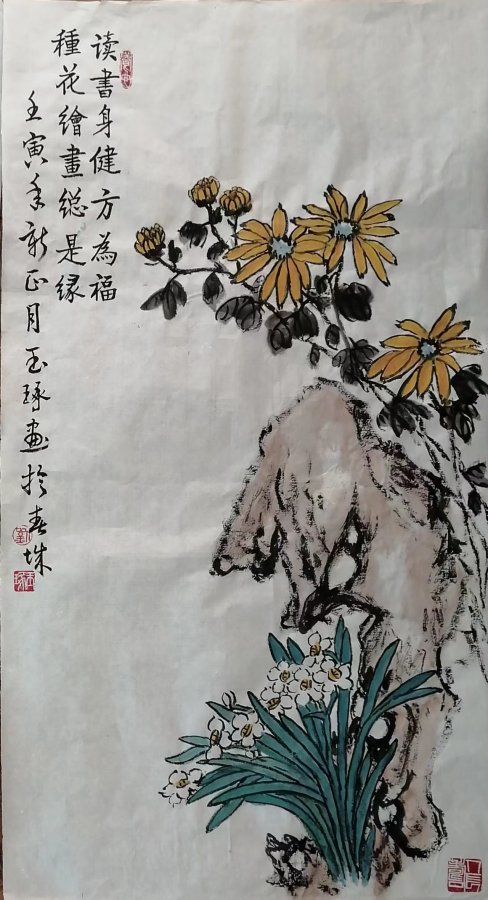 读書身健方為福
種花繪畫総是缘
壬寅年新正月玉琢画於春城